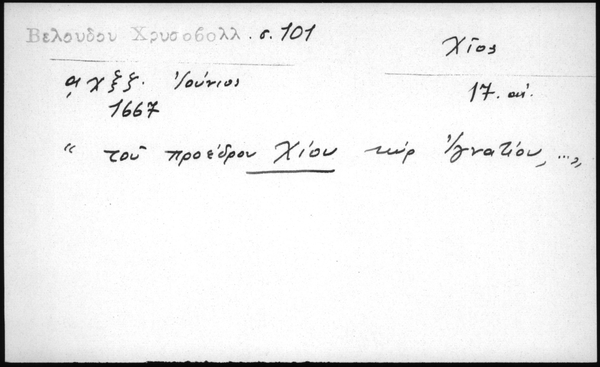 Βελουδου Χρυσοβολλ. σ. 101
Χῖος
͵αχξζ. Ἰούνιος
17. αἰ.
1667
“ τοῦ προέδρου Χίου κύρ Ἰγνατίου, ...„